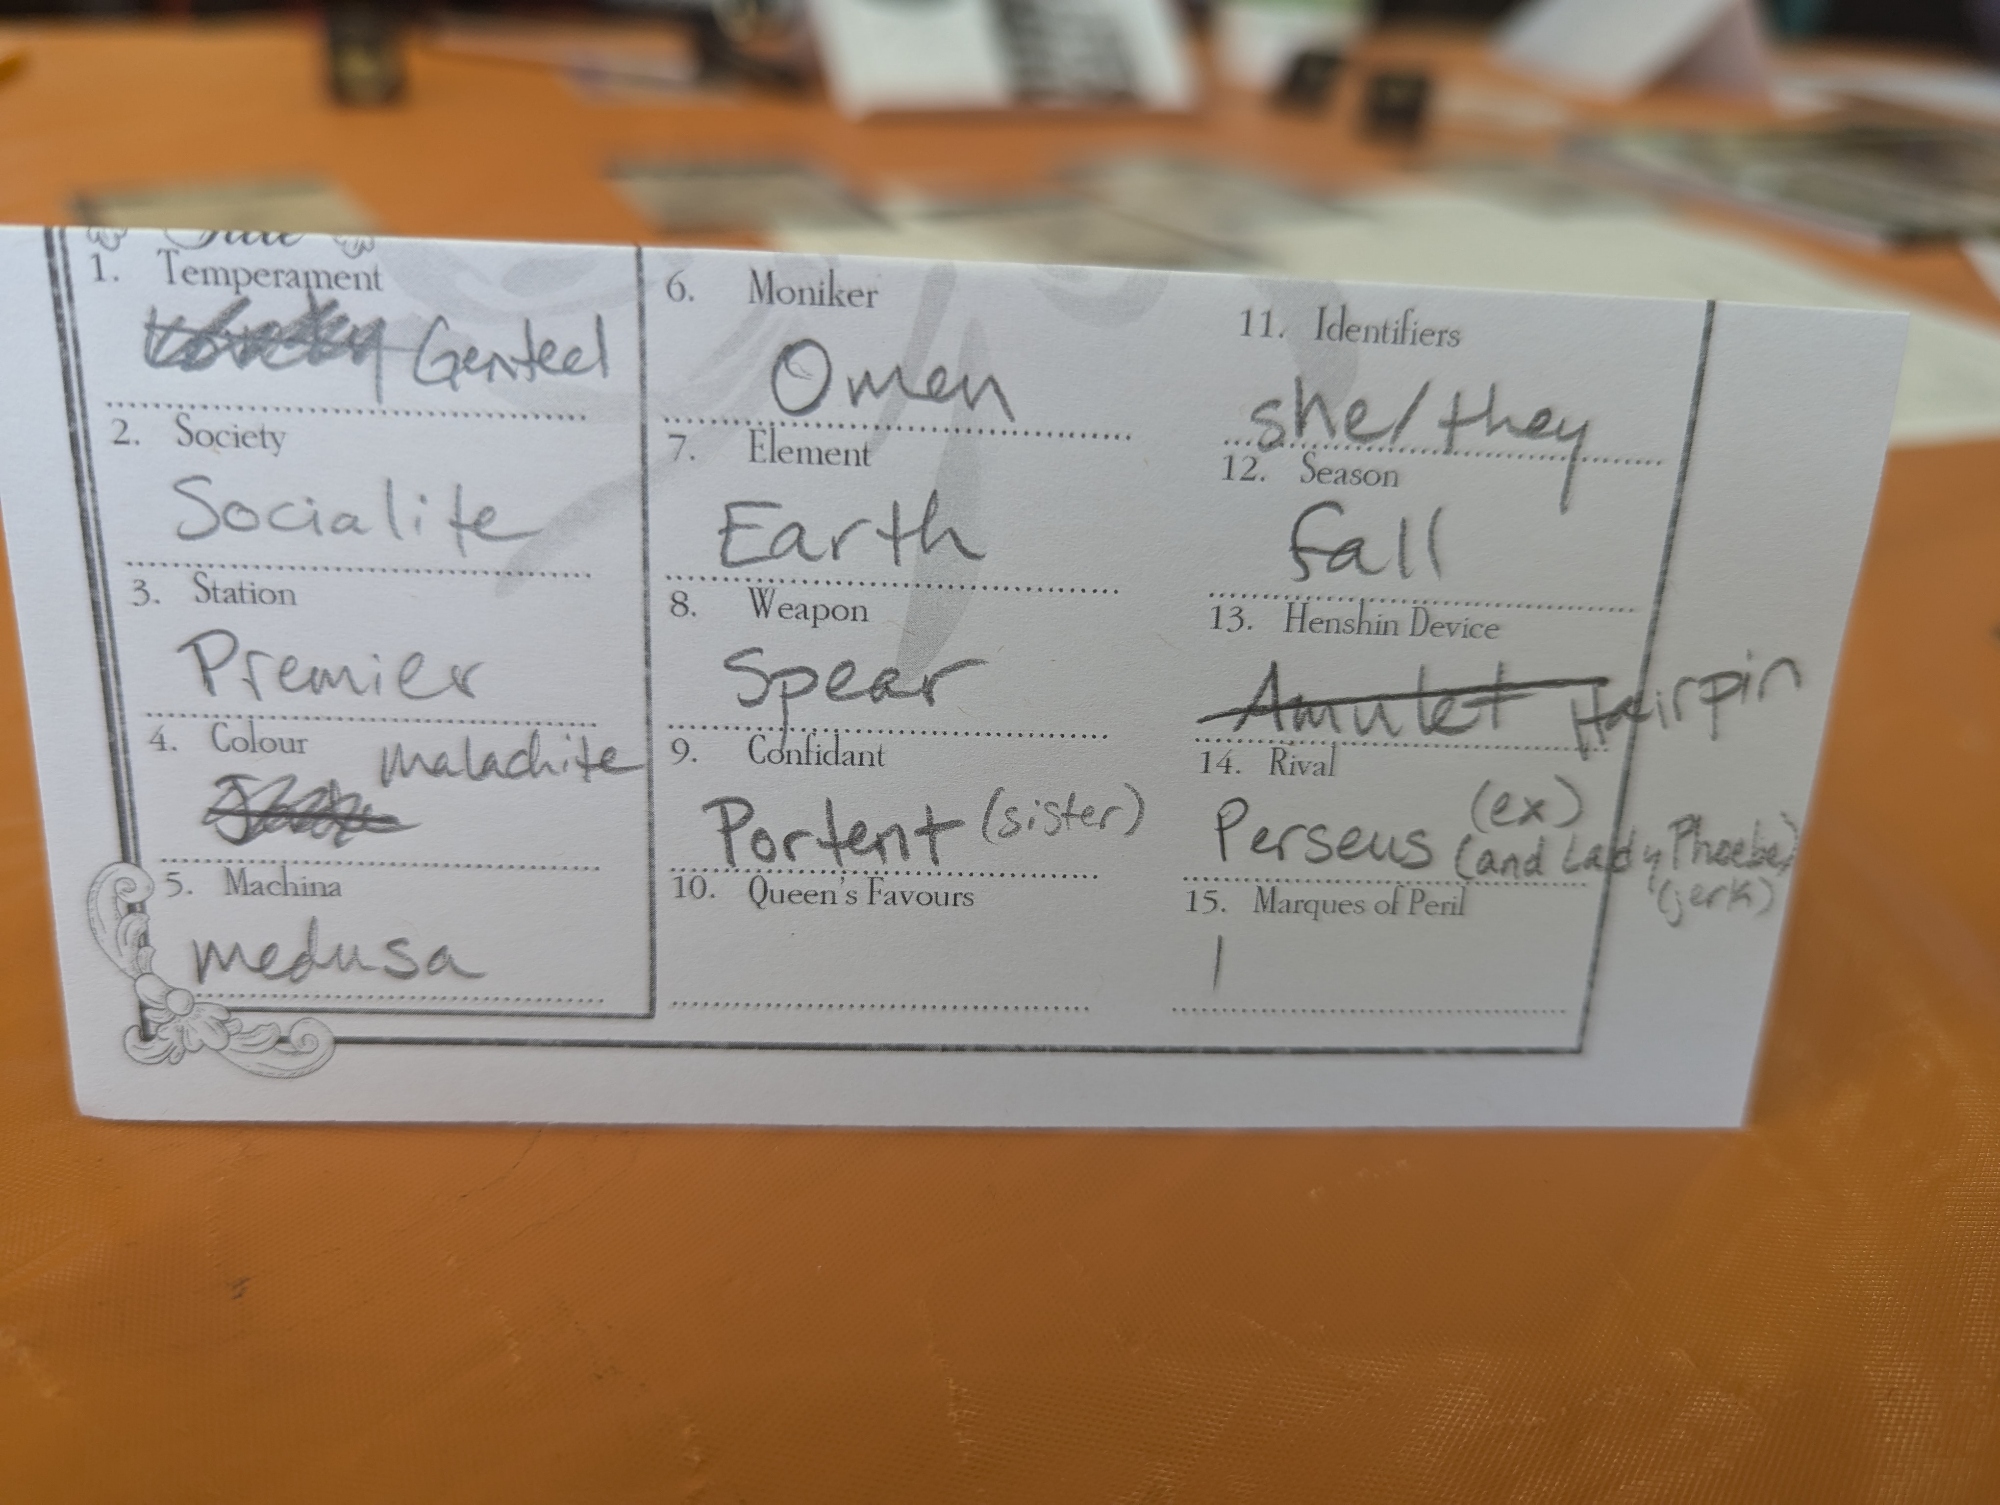 1. Temperament
Genteel
2. Society
Socialite
3. Station
Premier
4. Colour
Malachite
5. Machina
medusa
6. Moniker
Omen
7. Element
Earth
8. Weapon
Spear
9. Confidant
Portent (sister)
10. Queen's Favours
11. Identifiers
she/they
12. Season
fall
13. Henshin Device
Amulet Hairpin
14. Rival
(ex)
Perseus (and Lady Phoebe)
(jerk)
15. Marques of Peril
1